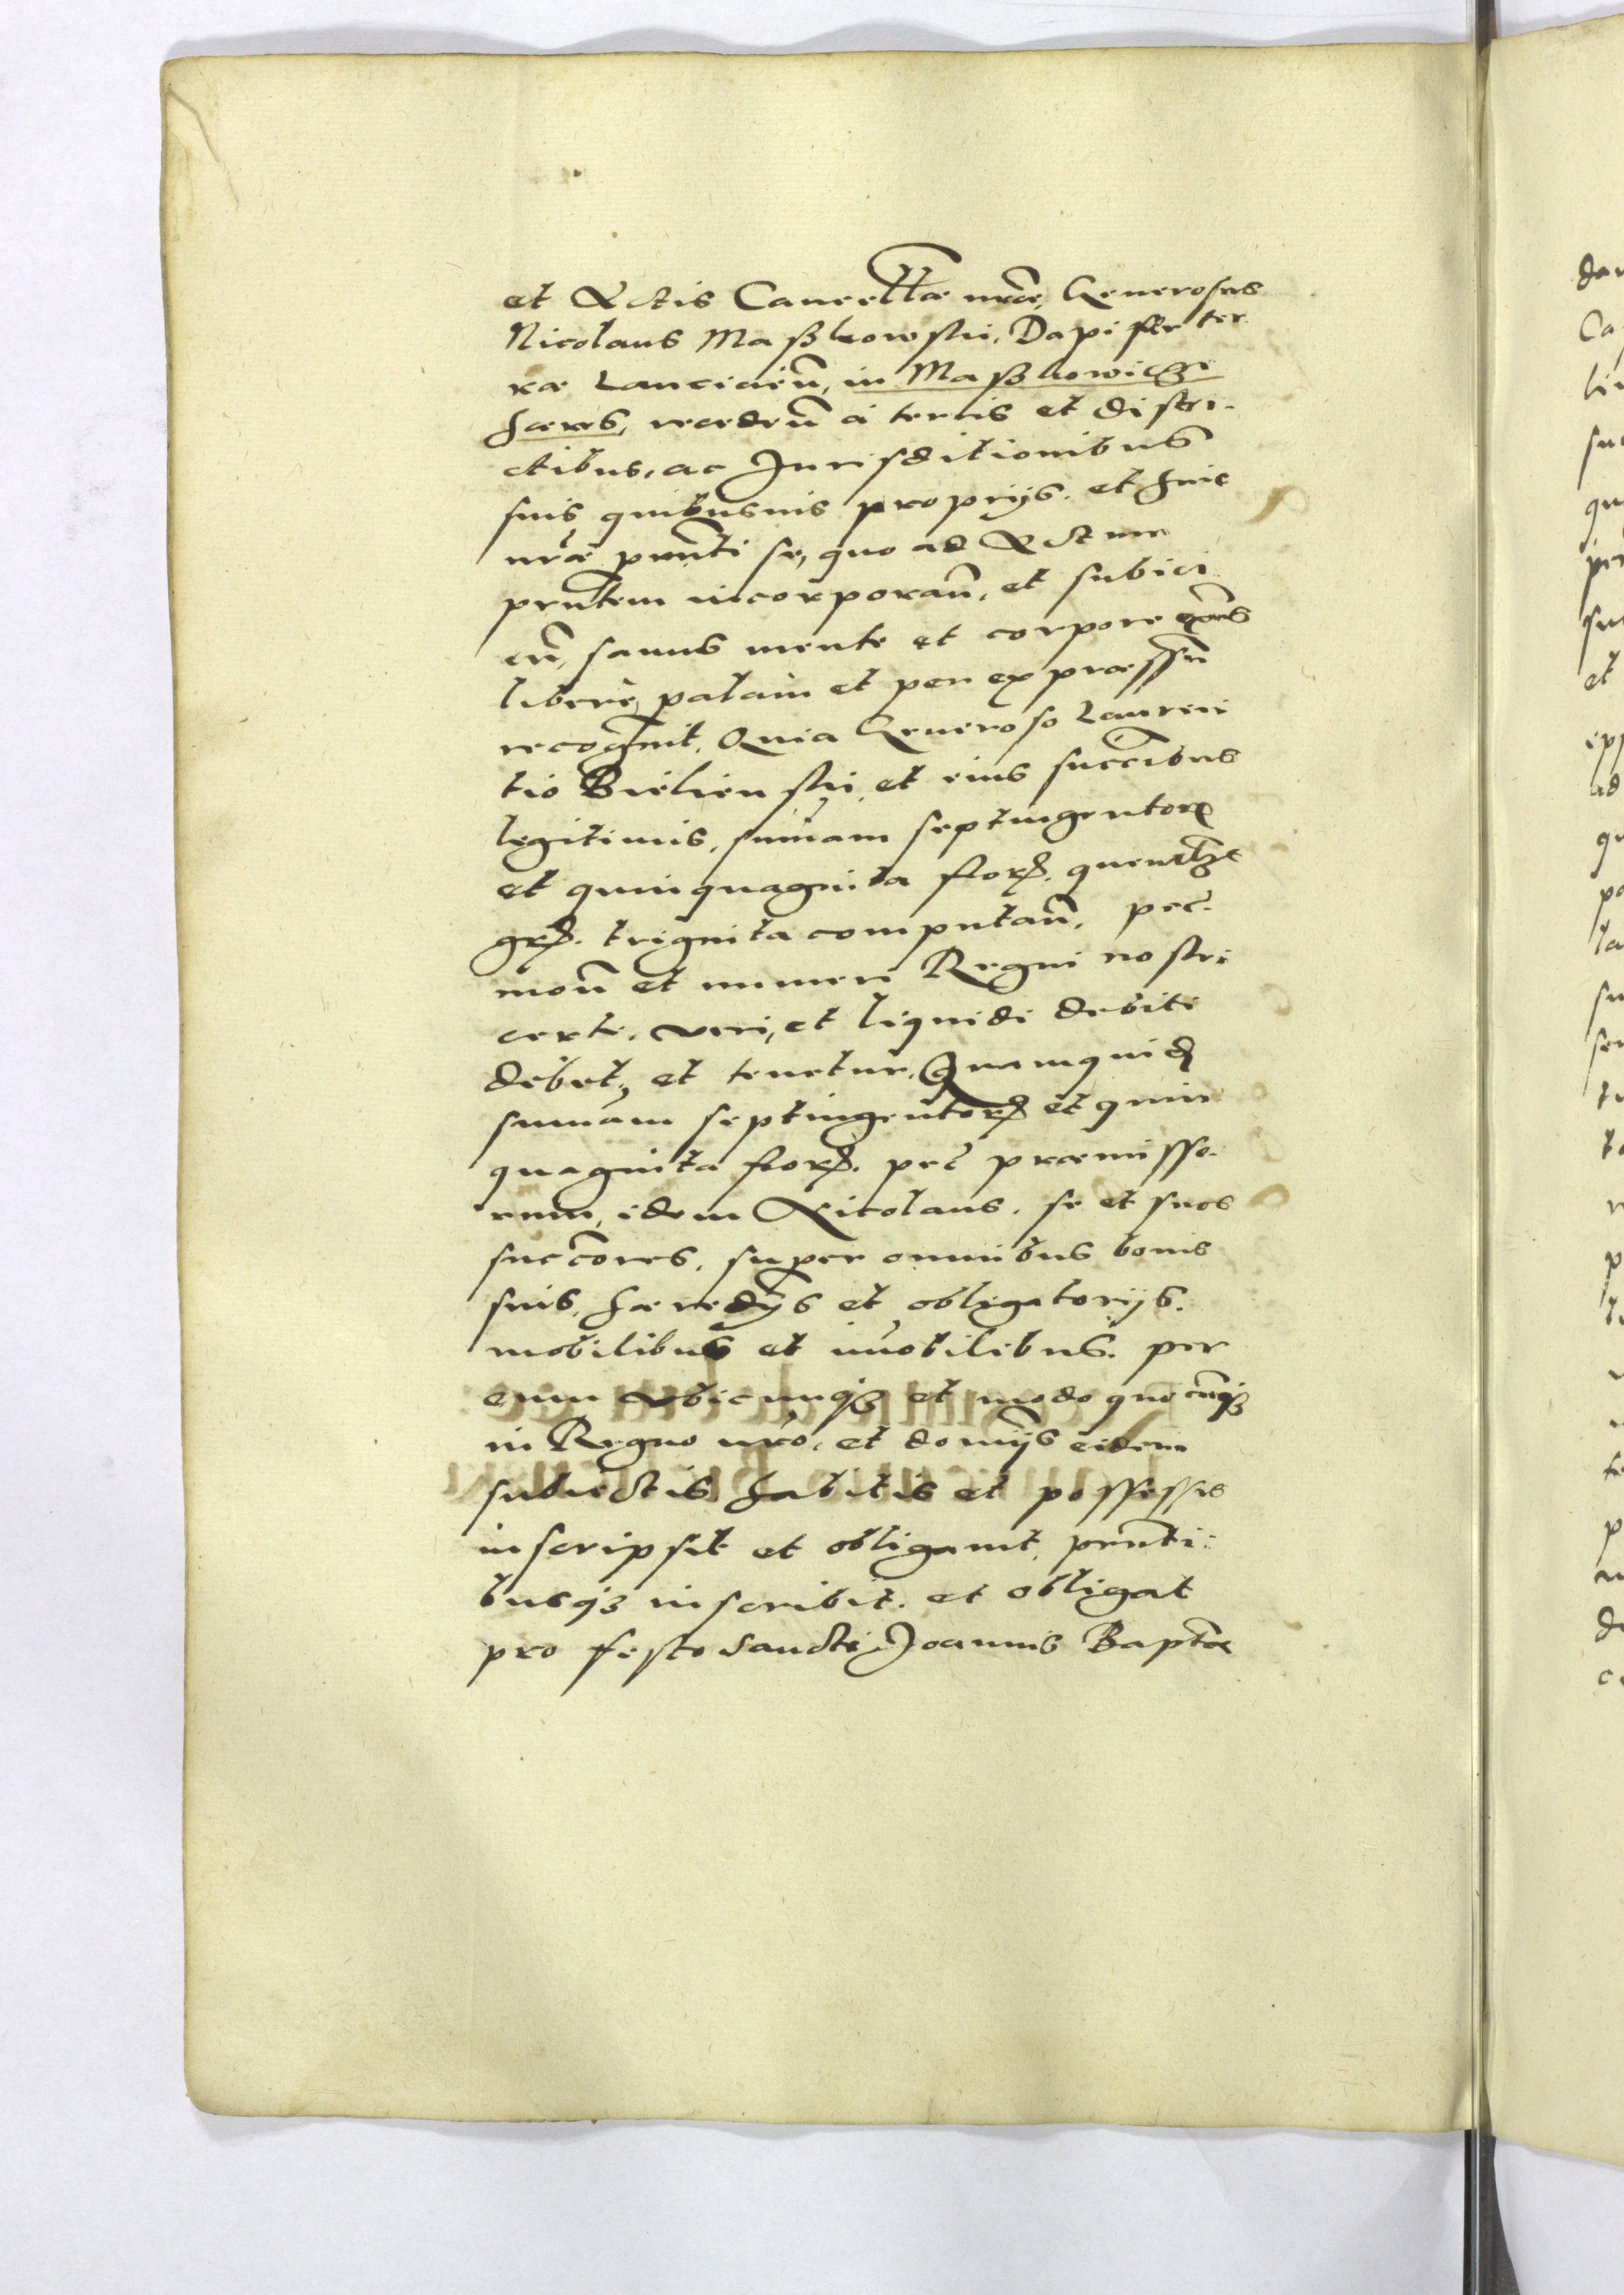 et Actis Cancellariae nrae, Generosus
Nicolaus Maßkowski, Dapifer ter-
rae Lanciciens, in Maßkowicze
haeres, recedens a terris et distri-
ctibus, ac Jurisditionibus
suis quibusvis proprijs. et huic
nrae pnti se, quo ad Actum
pntem incorporans, et subici
ens, sanus mente et corpore exns
libere, palam et per expressum
recognit, Quia Generoso Lauren
tio Bielienski, et eius succribus
legitimis, sum̃am septingentorum
et quinquaginta flor. quemlibet
gros. triginta computans, pec.
mon et numeri Regni nostri
certi, veri, et liquidi debiti
debet, et tenetur. Quamquidem
sum̃am septingentorum et quin
quaginta flor. pec praemisso-
rum, idem Nicolaus, se et suos
succores, super omnibus bonis
suis, haeredijs et obligatorijs,
mobilibus et im̃obilibus. per
eum vbicunq et modo quocunq
in Regno nro, et domijs eidem
subiectis habitis et possessis
inscripsit et obligauit, pnti-
busq inscribit et obligat
pro festo Sancti Joannis Baptae